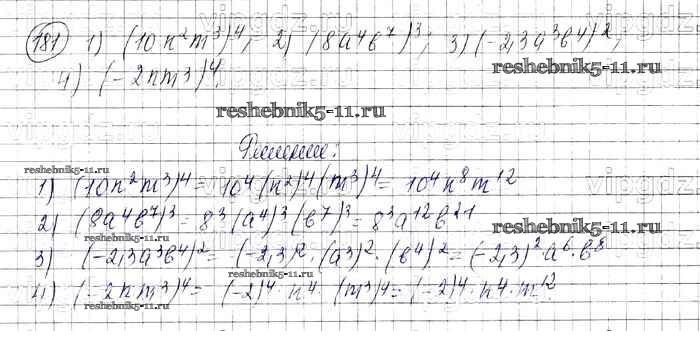 181 1) (10n²m³)⁴; 2) (8a⁴b⁷)³; 3) (-2,3a³b⁴)²;
4) (-2nm³)⁴.
reshebnik5-11.ru
reshebnik5-11.ru
Решение:
reshebnik5-11.ru
1) (10n²m³)⁴ = 10⁴(n²)⁴(m³)⁴ = 10⁴n⁸m¹²
2) (8a⁴b⁷)³ = 8³(a⁴)³(b⁷)³ = 8³a¹²b²¹
reshebnik5-11.ru
reshebnik5-11.ru
3) (-2,3a³b⁴)² = (-2,3)²·(a³)²·(b⁴)² = (-2,3)²a⁶·b⁸
reshebnik5-11.ru
4) (-2nm³)⁴ = (-2)⁴·n⁴·(m³)⁴ = (-2)⁴·n⁴·m¹².
reshebnik5-11.ru